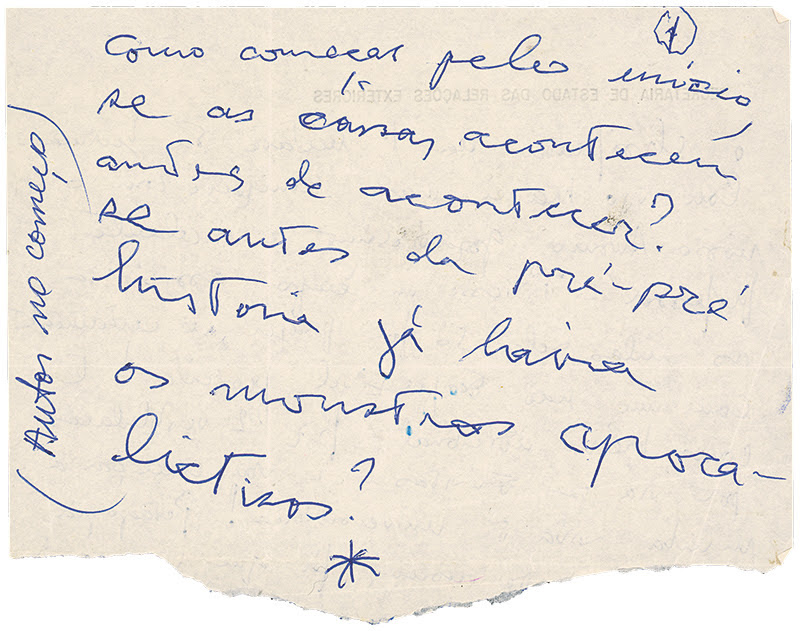 1
Como começar pelo início,
se as coisas acontecem
antes de acontecer?
se antes da pré-pré
história já havia
os monstros apoca-
lictizos?
*
(Autor no começo)
SECRETARIA DE ESTADO DAS RELAÇÕES EXTERIORES